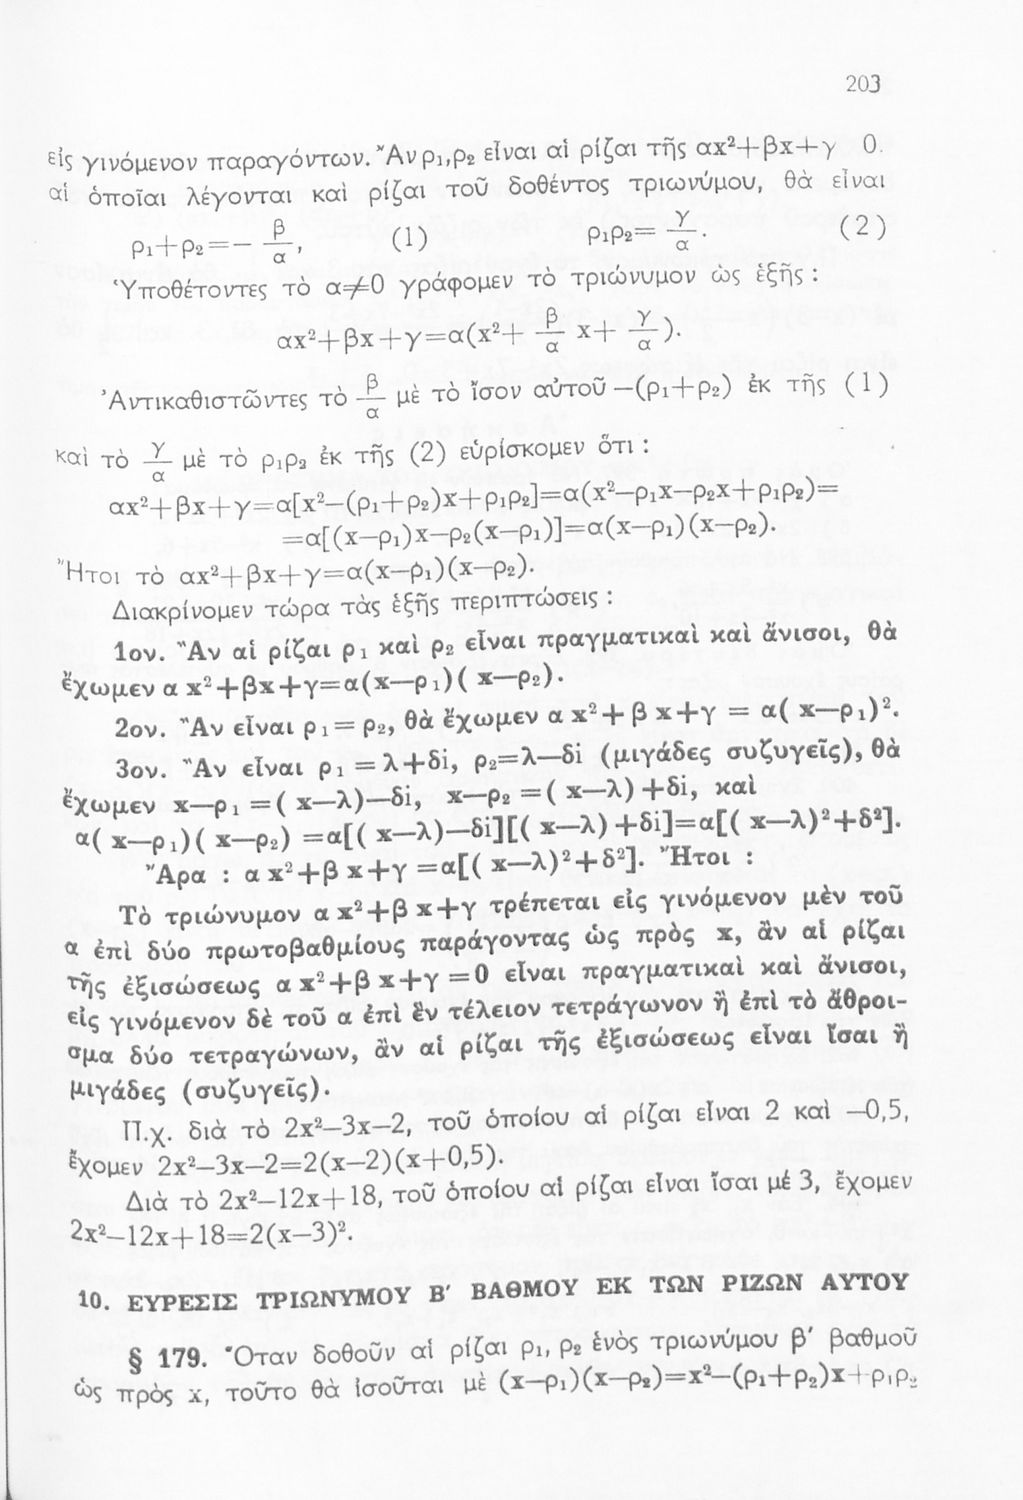 203
εἰς γινόμενον παραγόντων. Ἂν ρ₁,ρ₂ εἶναι αἱ ρίζαι τῆς αx²+βx+γ 0.
αἱ ὁποῖαι λέγονται καὶ ρίζαι τοῦ δοθέντος τριωνύμου, θὰ εἶναι
ρ₁+ρ₂=− β/α, (1) ρ₁ρ₂= γ/α. (2)
Ὑποθέτοντες τὸ α≠0 γράφομεν τὸ τριώνυμον ὡς ἑξῆς :
αx²+βx+γ=α(x²+ β/α x+ γ/α).
Ἀντικαθιστῶντες τὸ β/α μὲ τὸ ἴσον αὐτοῦ —(ρ₁+ρ₂) ἐκ τῆς (1)
καὶ τὸ γ/α μὲ τὸ ρ₁ρ₂ ἐκ τῆς (2) εὑρίσκομεν ὅτι :
αx²+βx+γ=α[x²—(ρ₁+ρ₂)x+ρ₁ρ₂]=α(x²—ρ₁x—ρ₂x+ρ₁ρ₂)=
=α[(x—ρ₁)x—ρ₂(x—ρ₁)]=α(x—ρ₁)(x—ρ₂).
Ἤτοι τὸ αx²+βx+γ=α(x—ρ₁)(x—ρ₂).
Διακρίνομεν τώρα τὰς ἑξῆς περιπτώσεις :
1ον. Ἂν αἱ ρίζαι ρ₁ καὶ ρ₂ εἶναι πραγματικαὶ καὶ ἄνισοι, θὰ
ἔχωμεν α x²+βx+γ=α(x—ρ₁)( x—ρ₂).
2ον. Ἂν εἶναι ρ₁= ρ₂, θὰ ἔχωμεν α x²+β x+γ = α( x—ρ₁)².
3ον. Ἂν εἶναι ρ₁ = λ+δi, ρ₂=λ—δi (μιγάδες συζυγεῖς), θὰ
ἔχωμεν x—ρ₁ =( x—λ)—δi, x—ρ₂ =( x—λ) +δi, καὶ
α( x—ρ₁)( x—ρ₂) =α[( x—λ)—δi][( x—λ) +δi]=α[( x—λ)²+δ²].
Ἄρα : α x²+β x+γ =α[( x—λ)²+δ²]. Ἤτοι :
Τὸ τριώνυμον α x²+β x+γ τρέπεται εἰς γινόμενον μὲν τοῦ
α ἐπὶ δύο πρωτοβαθμίους παράγοντας ὡς πρὸς x, ἂν αἱ ρίζαι
τῆς ἐξισώσεως α x²+β x+γ =0 εἶναι πραγματικαὶ καὶ ἄνισοι,
εἰς γινόμενον δὲ τοῦ α ἐπὶ ἓν τέλειον τετράγωνον ἢ ἐπὶ τὸ ἄθροι-
σμα δύο τετραγώνων, ἂν αἱ ρίζαι τῆς ἐξισώσεως εἶναι ἴσαι ἢ
μιγάδες (συζυγεῖς).
Π.χ. διὰ τὸ 2x²—3x—2, τοῦ ὁποίου αἱ ρίζαι εἶναι 2 καὶ —0,5,
ἔχομεν 2x²—3x—2=2(x—2)(x+0,5).
Διὰ τὸ 2x²—12x+18, τοῦ ὁποίου αἱ ρίζαι εἶναι ἴσαι μέ 3, ἔχομεν
2x²—12x+18=2(x—3)².
10. ΕΥΡΕΣΙΣ ΤΡΙΩΝΥΜΟΥ Β' ΒΑΘΜΟΥ ΕΚ ΤΩΝ ΡΙΖΩΝ ΑΥΤΟΥ
§ 179. Ὅταν δοθοῦν αἱ ρίζαι ρ₁, ρ₂ ἑνὸς τριωνύμου β' βαθμοῦ
ὡς πρὸς x, τοῦτο θὰ ἰσοῦται μὲ (x—ρ₁)(x—ρ₂)=x²—(ρ₁+ρ₂)x+ρ₁ρ₂